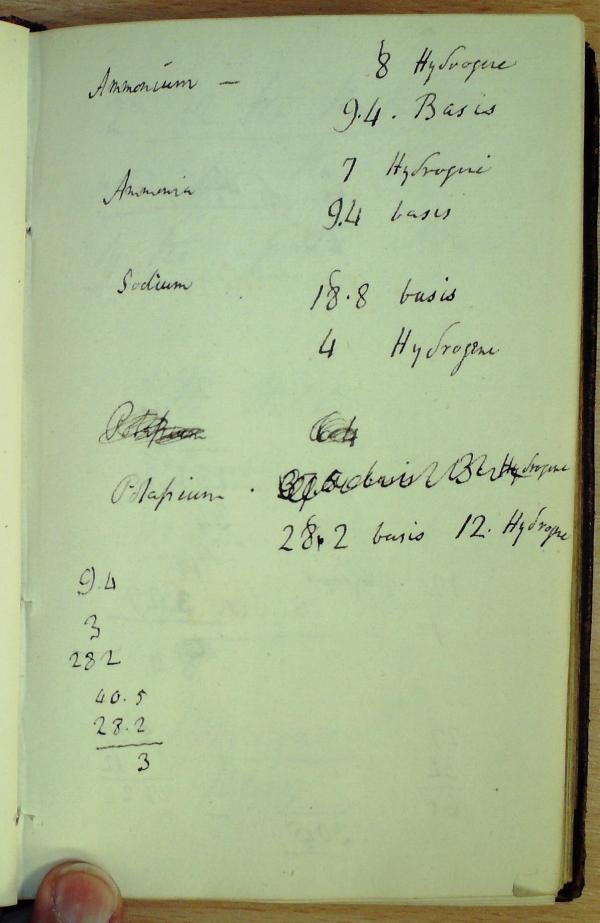 Ammonium — 8 Hydrogene
9.4. Basis
7 Hydrogene
Ammonia
9.4 basis
Sodium 18.8 basis
4 Hydrogene
Potassium 64
Potassium. basis Hydrogene
28.2 basis 12. Hydrogene
9.4
3
282
40.5
28.2
3